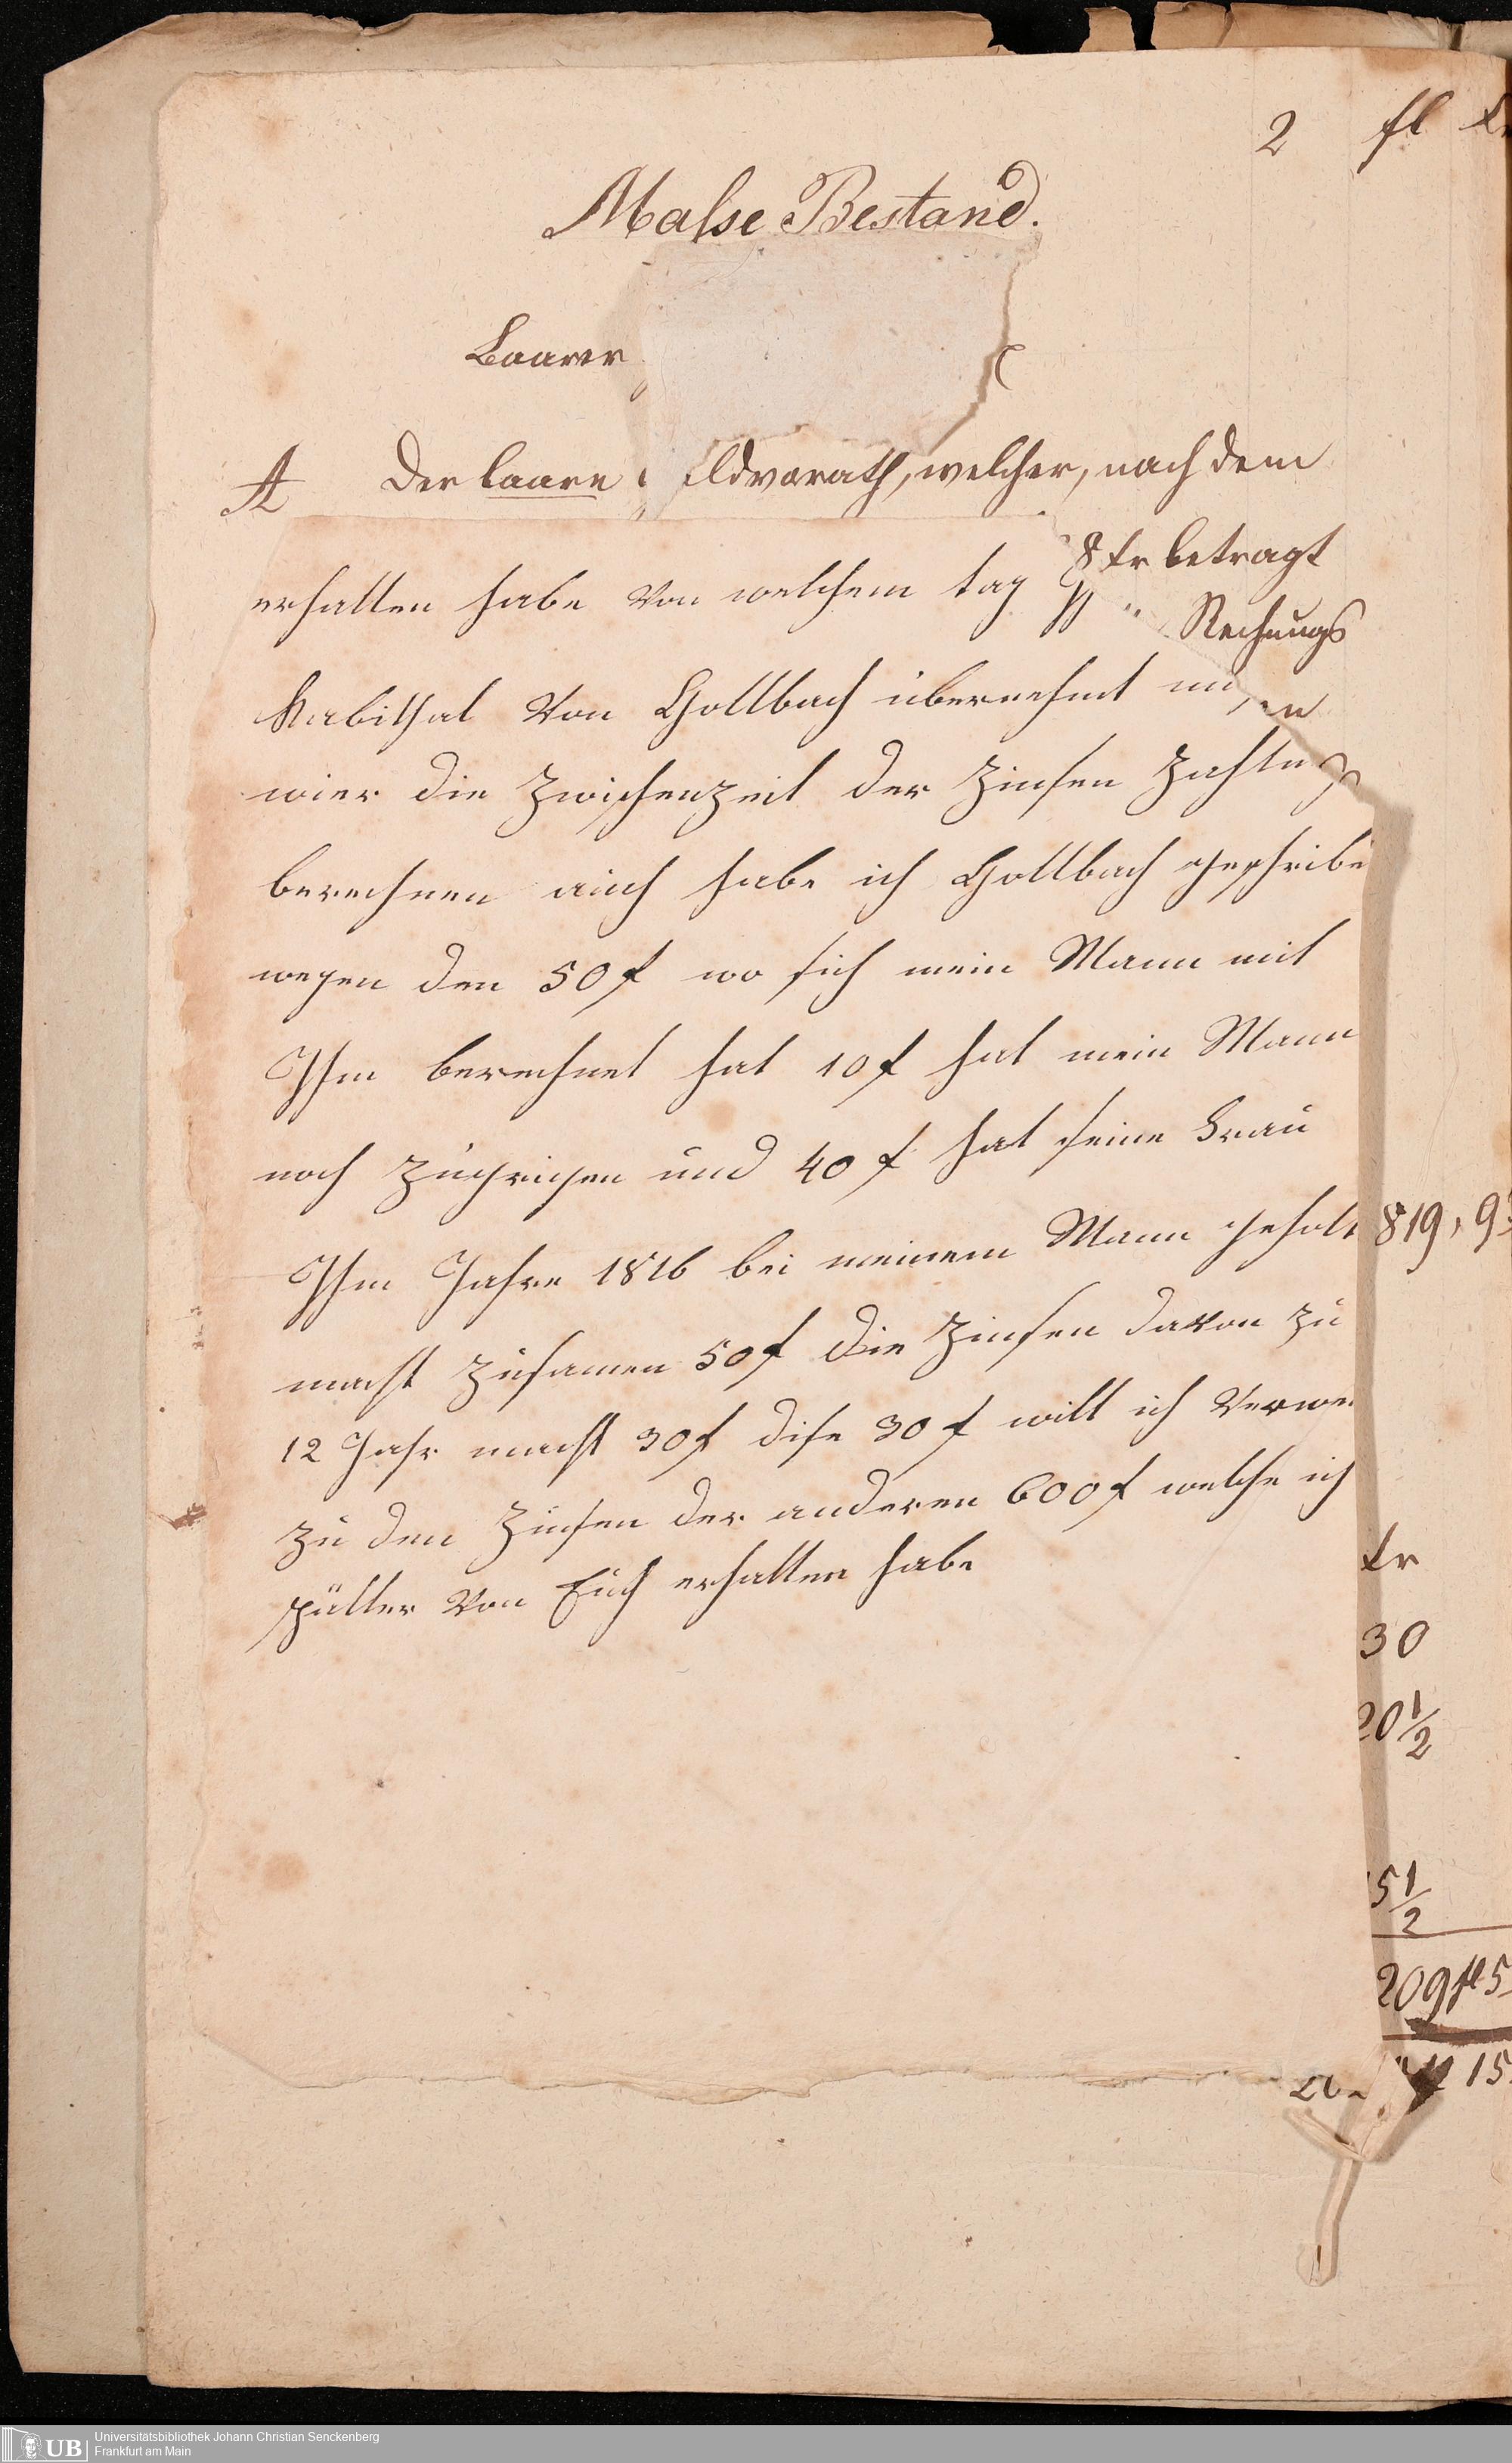 2 fl
Malse Bestand.
Baarer
A Der baare eldvorath, welcher, nach dem
8 kr betragt
erhalten habe von welchem tag
Rechnungs
Kabithal von Hollbach übernehmt
wier die Zwischenzeit der Zinsen
berechnen auch habe ich Hollbach geschribe
wegen den 50 f wo sich mein Mann mit
Ihm berechnet hat 10 f hat mein Mann
noch zugrigen und 40 f hat seine Frau
Ihm Jahre 1816 bei meinem Mann geholt
819, 9
macht zusamen 50 f die Zinsen davon zu
12 Jahr macht 30 f dise 30 f will ich
zu den Zinsen der anderen 600 f welche ich
kr
spätter von Euch erhalten habe
30
20 1/2
5 1/2
209 fl 5
15
UB
Universitätsbibliothek Johann Christian Senckenberg
Frankfurt am Main